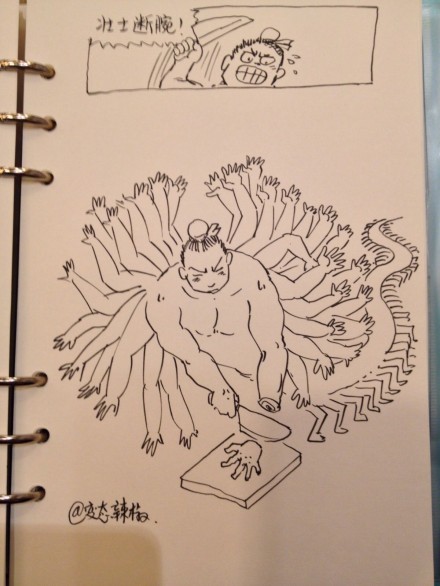 壮士断腕!
@变态辣椒.